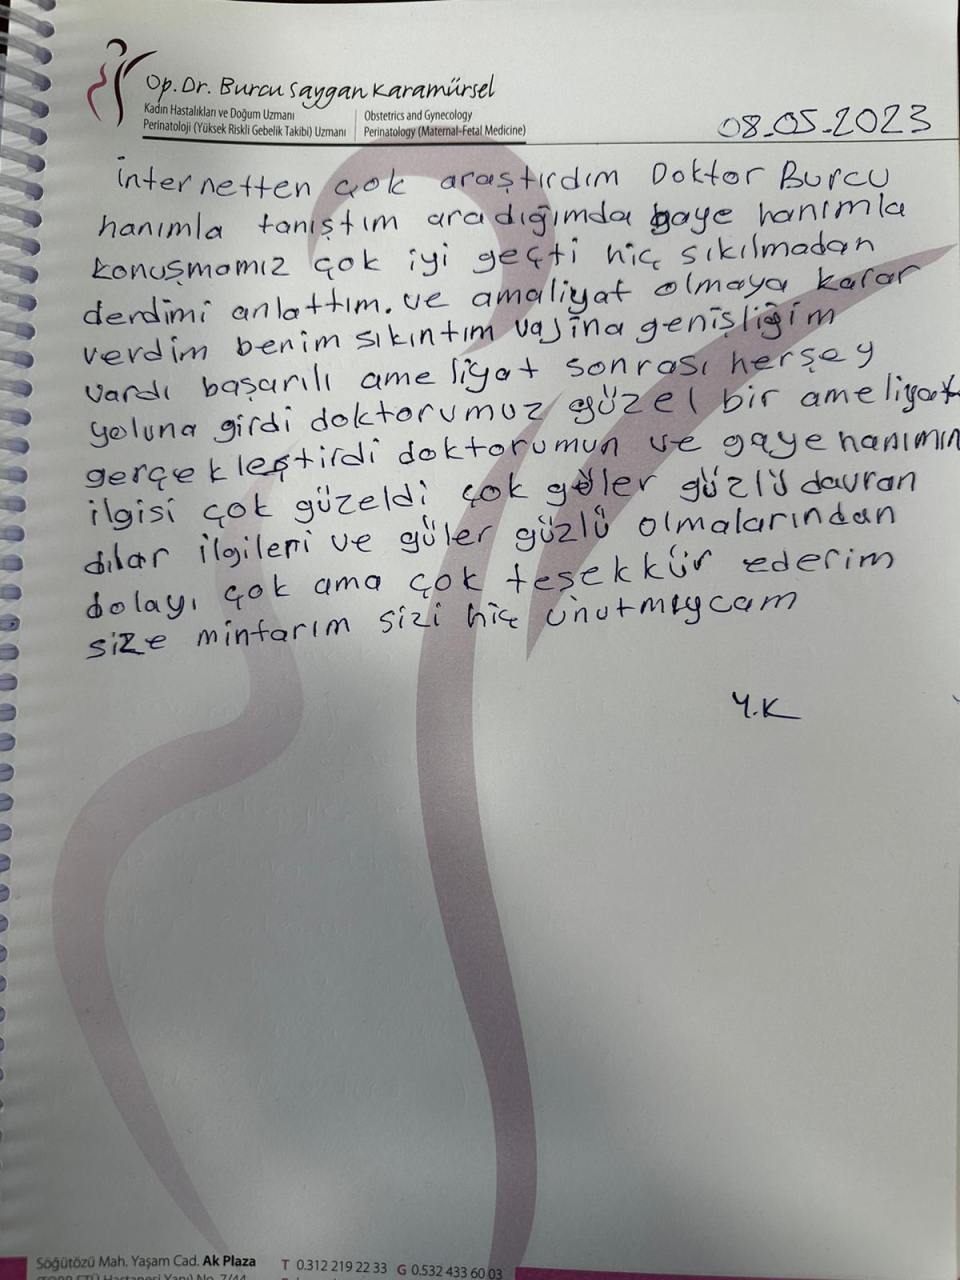 Op. Dr. Burcu Saygan Karamürsel
Kadın Hastalıkları ve Doğum Uzmanı
Perinatoloji (Yüksek Riskli Gebelik Takibi) Uzmanı
Obstetrics and Gynecology
Perinatology (Maternal-Fetal Medicine)
08.05.2023
internetten çok araştırdım Doktor Burcu
hanımla tanıştım aradığımda gaye hanımla
konuşmamız çok iyi geçti hiç sıkılmadan
derdimi anlattım. ve amaliyat olmaya karar
verdim benim sıkıntım vajina genişliğim
vardı başarılı ameliyat sonrası herşey
yoluna girdi doktorumuz güzel bir ameliyat
gerçekleştirdi doktorumun ve gaye hanımın
ilgisi çok güzeldi çok güler güzlü davran
dılar ilgileri ve güler güzlü olmalarından
dolayı çok ama çok teşekkür ederim
size mintarım sizi hiç unutmıycam
Y.K
Söğütözü Mah. Yaşam Cad. Ak Plaza
T 0.312 219 22 33 G 0.532 433 60 03